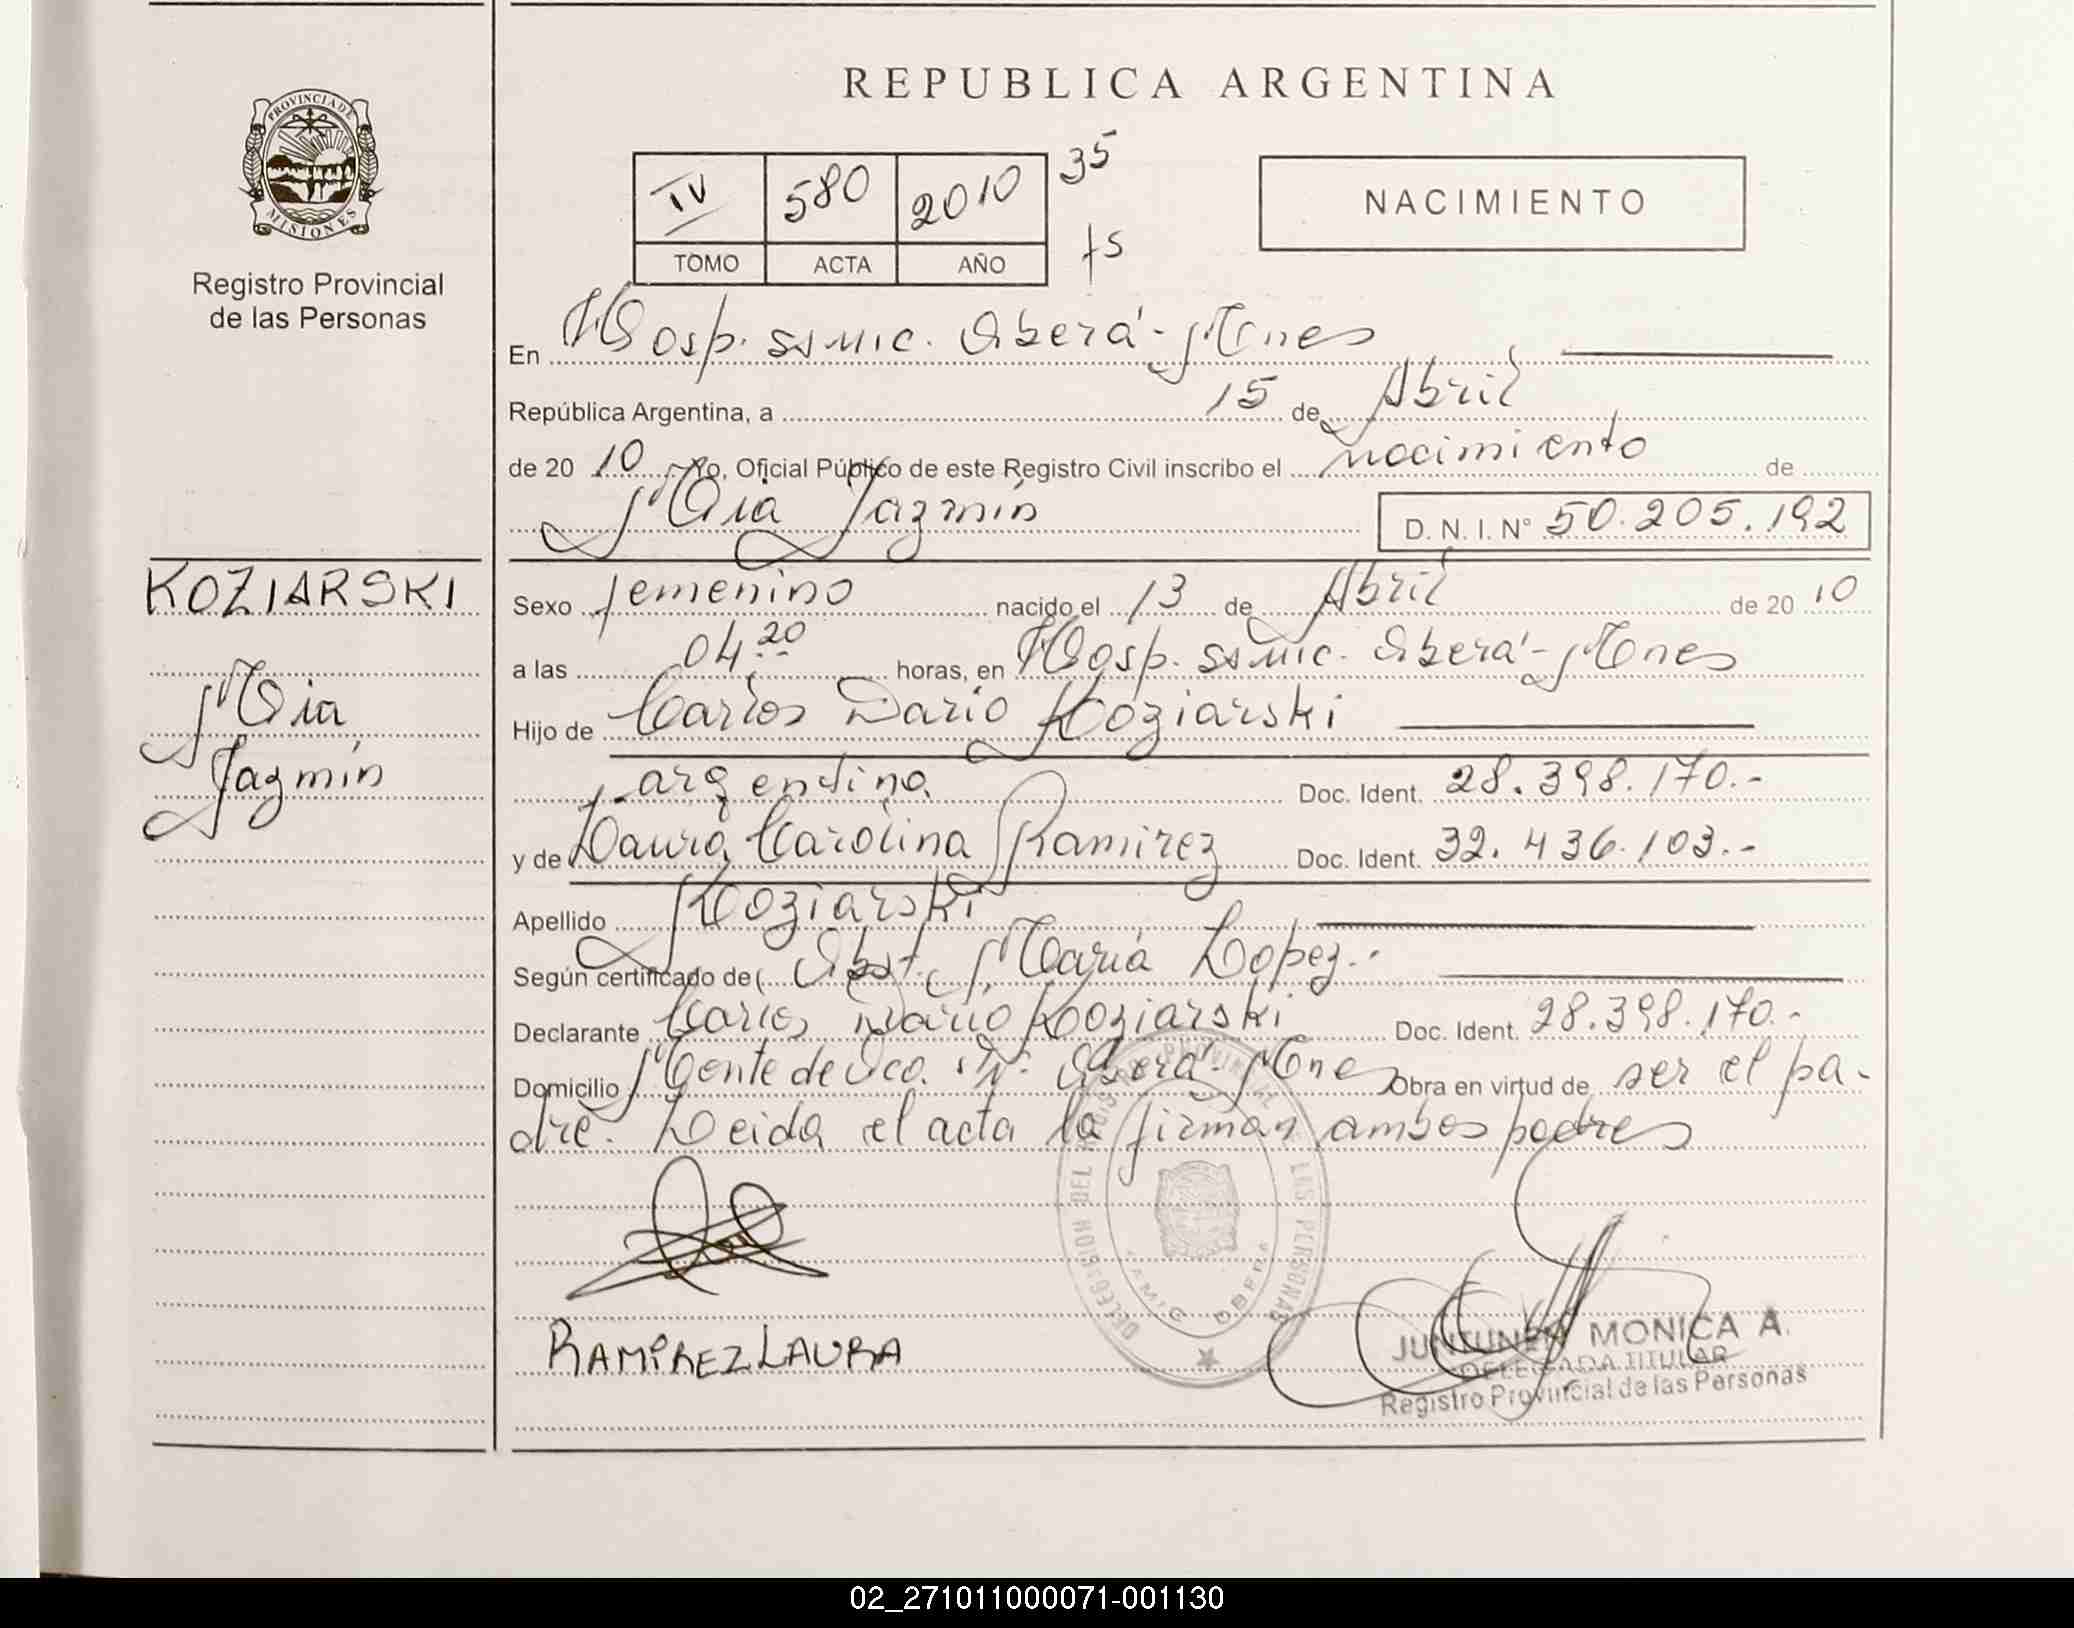 REPUBLICA ARGENTINA
PROVINCIA DE
MISIONES
Registro Provincial
de las Personas
IV 580 2010 35
TOMO ACTA AÑO
NACIMIENTO
En Hosp. ssmic. Oberá - Mnes
República Argentina, a 15 de Abril
de 2010 Yo, Oficial Público de este Registro Civil inscribo el nacimiento de
Mia Jazmín D. N. I. N° 50.205.192
KOZIARSKI
Mia
Jazmín
Sexo femenino nacido el 13 de Abril de 2010
a las 04,20 horas, en Hosp. ssmic. Oberá - Mnes
Hijo de Carlos Dario Koziarski
argentino. Doc. Ident. 28.398.170.-
y de Laura Carolina Ramirez Doc. Ident. 32.436.103.-
Apellido Koziarski
Según certificado de Obst. María Lopez.-
Declarante Carlos Dario Koziarski Doc. Ident. 28.398.170.-
Domicilio Mente de Oca. Oberá - Mnes Obra en virtud de ser el pa-
dre. Leida el acta la firman ambos padres
DELEGACION DEL REGISTRO PROVINCIAL DE LAS PERSONAS
RAMÍREZ LAURA
JUNTUNEN MONICA A.
DELEGADA TITULAR
Registro Provincial de las Personas
02_271011000071-001130